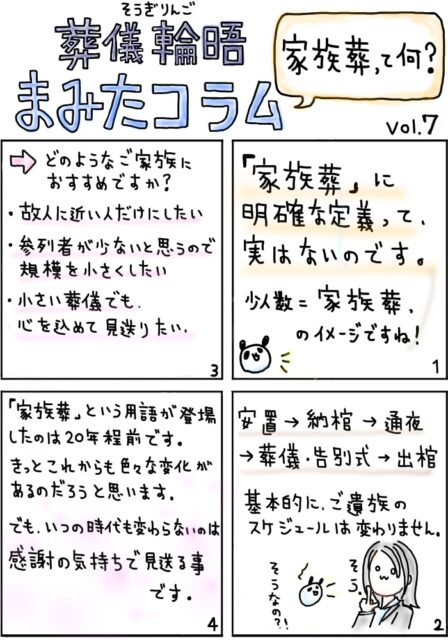 そうぎりんご
葬儀輪晤
まみたコラム
家族葬って何?
vol.7
「家族葬」に
明確な定義って、
実はないのです。
少人数=家族葬、
のイメージですね!
1
安置→納棺→通夜
→葬儀・告別式→出棺
基本的に、ご遺族の
スケジュールは変わりません。
そう。
そうなの?!
2
⇨ どのようなご家族に
おすすめですか?
・故人に近い人だけにしたい
・参列者が少ないと思うので
規模を小さくしたい
・小さい葬儀でも、
心を込めて見送りたい、
3
「家族葬」という用語が登場
したのは20年程前です。
きっとこれからも色々な変化が
あるのだろうと思います。
でも、いつの時代も変わらないのは
感謝の気持ちで見送る事
です。
4